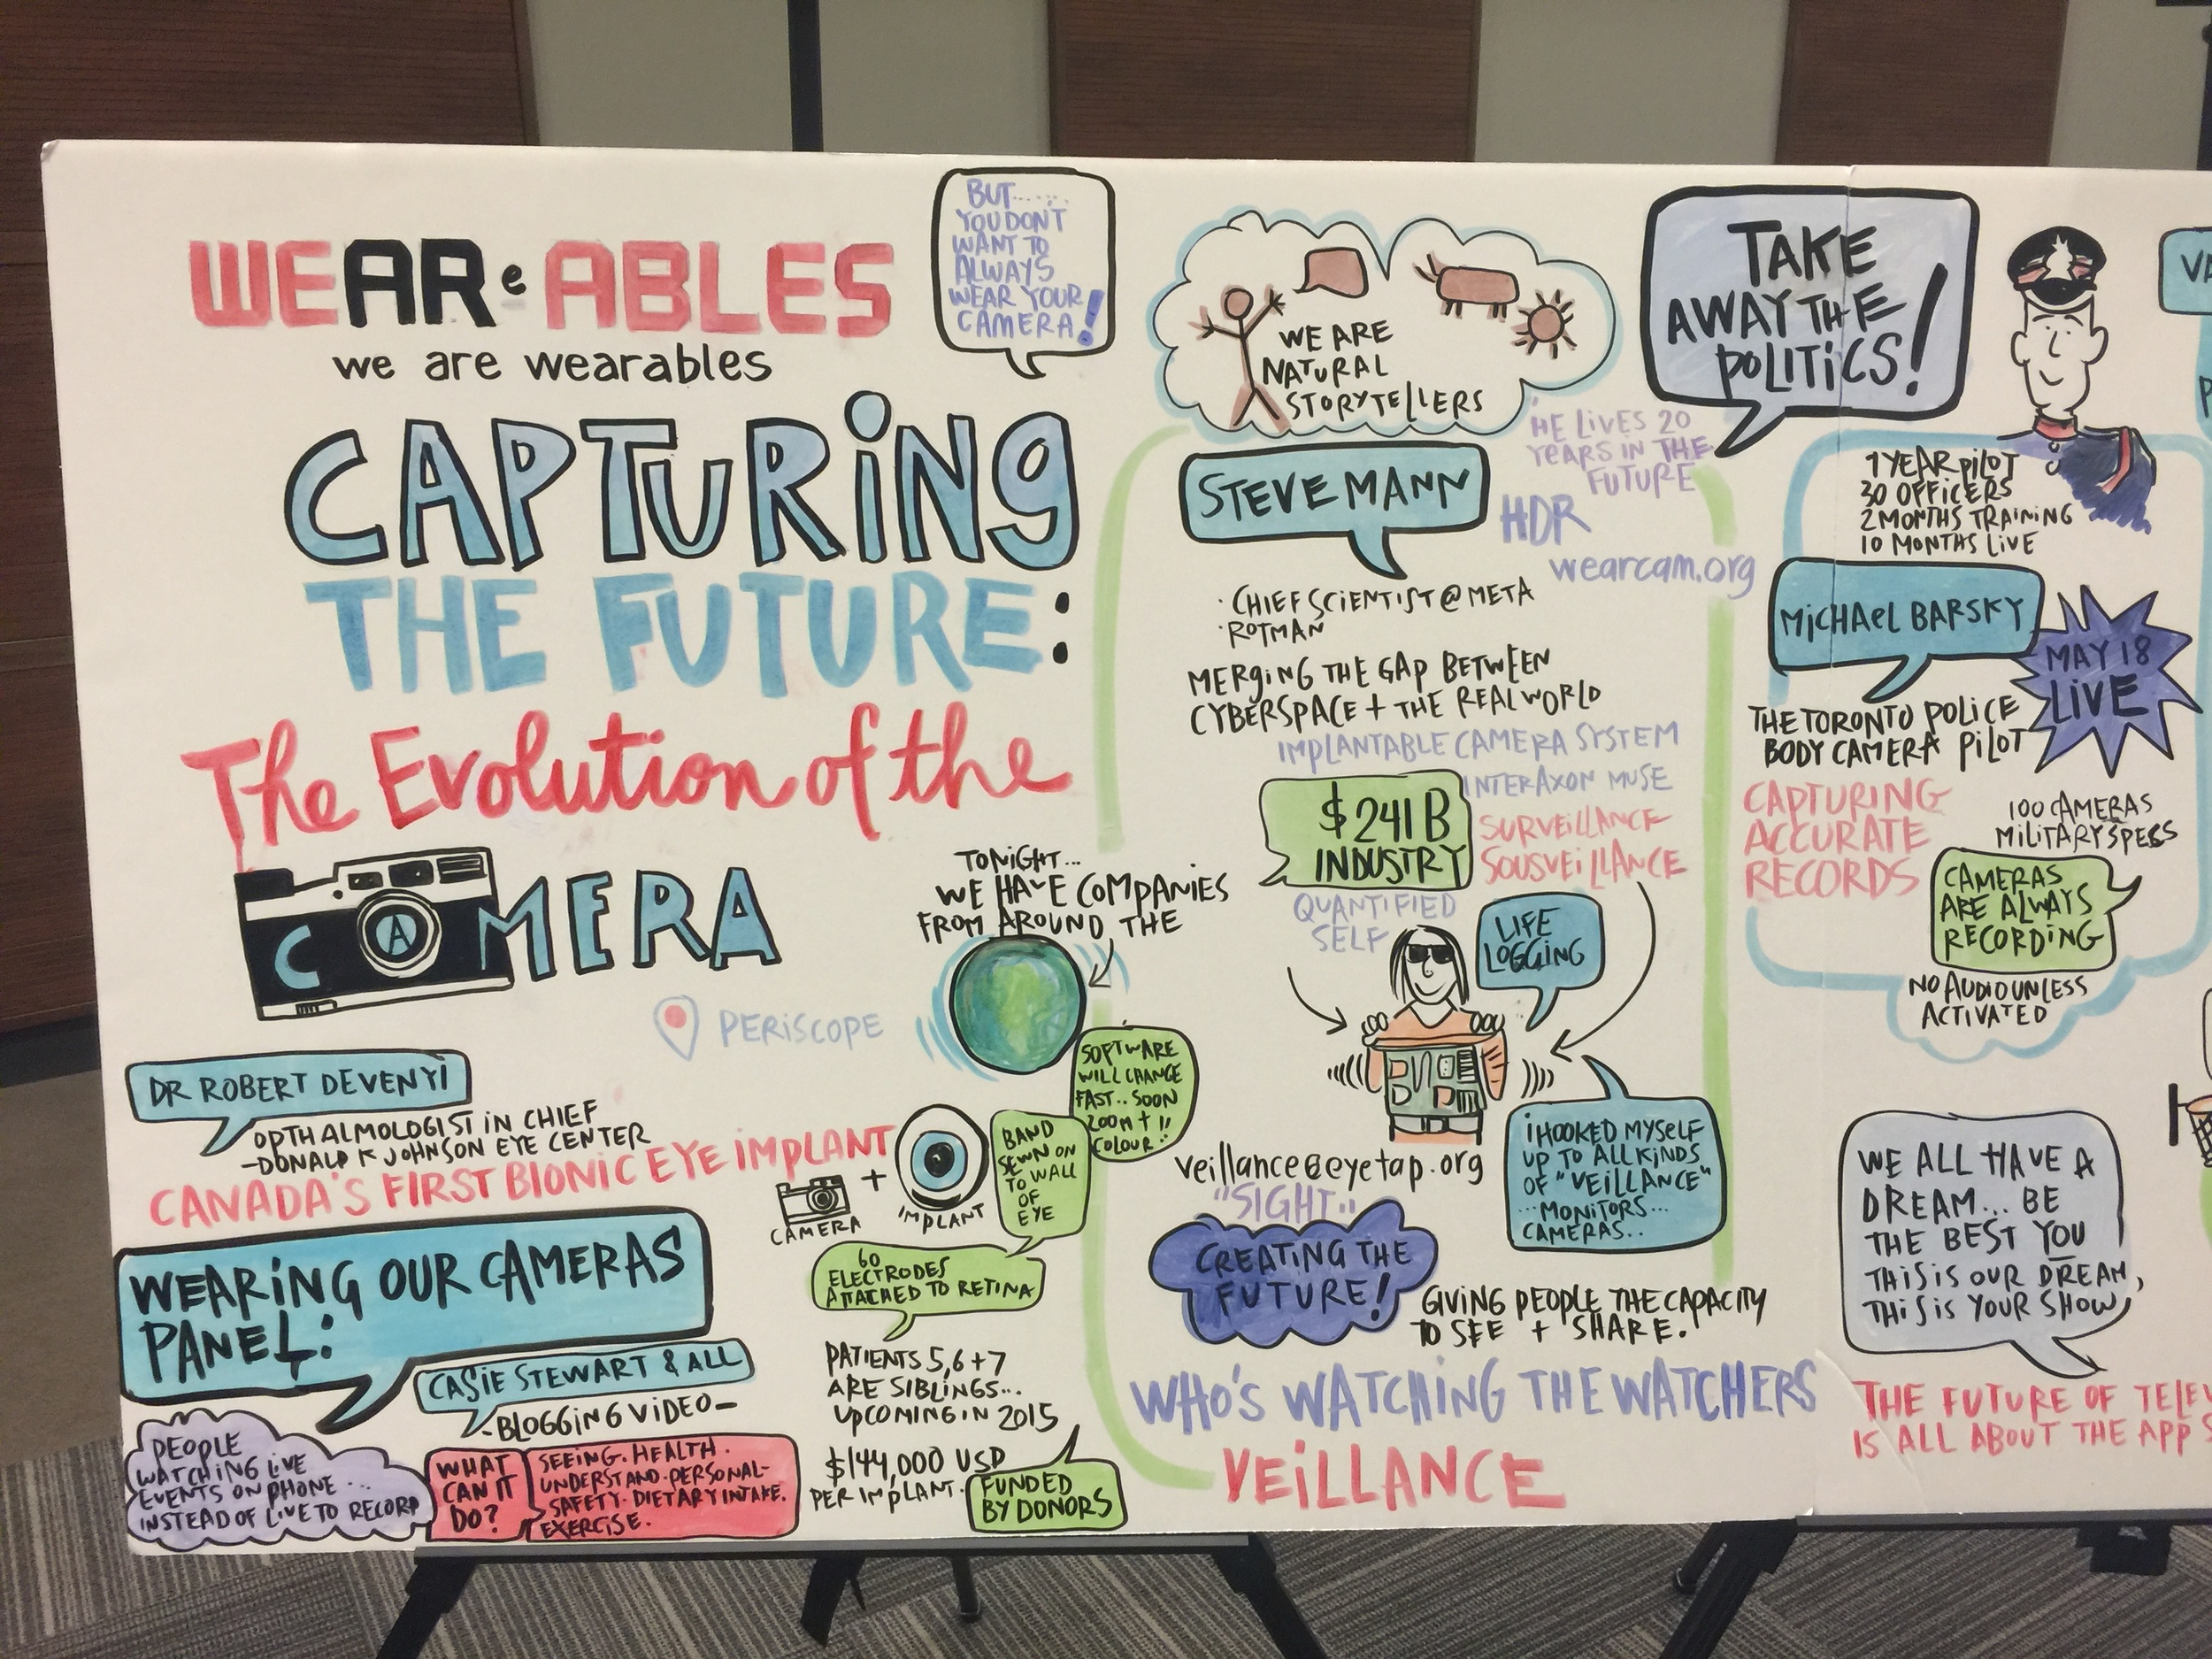 WEAReABLES
we are wearables
BUT......
YOU DON'T
WANT TO
ALWAYS
WEAR YOUR
CAMERA!
CAPTURING
THE FUTURE:
The Evolution of the
CAMERA
PERISCOPE
TONIGHT...
WE HAVE COMPANIES
FROM AROUND THE
DR ROBERT DEVENYI
OPTHALMOLOGIST IN CHIEF
-DONALD K JOHNSON EYE CENTER
CANADA'S FIRST BIONIC EYE IMPLANT
CAMERA
+
IMPLANT
BAND
SEWN ON
TO WALL
OF
EYE
SOFTWARE
WILL CHANGE
FAST.. SOON
ZOOM + !!
COLOUR..
60
ELECTRODES
ATTACHED TO RETINA
PATIENTS 5,6+7
ARE SIBLINGS...
UPCOMING IN 2015
$144,000 USD
PER IMPLANT.
FUNDED
BY DONORS
WEARING OUR CAMERAS
PANEL:
CASIE STEWART & ALL
-BLOGGING VIDEO-
PEOPLE
WATCHING LIVE
EVENTS ON PHONE...
INSTEAD OF LIVE TO RECORD
WHAT
CAN IT
DO?
SEEING. HEALTH.
UNDERSTAND. PERSONAL-
SAFETY. DIETARY INTAKE.
EXERCISE.
WE ARE
NATURAL
STORYTELLERS
STEVE MANN
'HE LIVES 20
YEARS IN THE
FUTURE
HDR
wearcam.org
· CHIEF SCIENTIST @ META
· ROTMAN
MERGING THE GAP BETWEEN
CYBERSPACE + THE REAL WORLD
IMPLANTABLE CAMERA SYSTEM
INTERAXON MUSE
$241B
INDUSTRY
SURVEILLANCE
SOUSVEILLANCE
QUANTIFIED
SELF
LIFE
LOGGING
I HOOKED MYSELF
UP TO ALL KINDS
OF "VEILLANCE"
...MONITORS...
CAMERAS..
veillance@eyetap.org
"SIGHT..
CREATING THE
FUTURE!
GIVING PEOPLE THE CAPACITY
TO SEE + SHARE.
WHO'S WATCHING THE WATCHERS
VEILLANCE
TAKE
AWAY THE
POLITICS!
1 YEAR PILOT
30 OFFICERS
2 MONTHS TRAINING
10 MONTHS LIVE
MICHAEL BARSKY
MAY 18
LIVE
THE TORONTO POLICE
BODY CAMERA PILOT
CAPTURING
ACCURATE
RECORDS
100 CAMERAS
MILITARY SPECS
CAMERAS
ARE ALWAYS
RECORDING
NO AUDIO UNLESS
ACTIVATED
WE ALL HAVE A
DREAM... BE
THE BEST YOU
THIS IS OUR DREAM,
THIS IS YOUR SHOW,
THE FUTURE OF TELEV
IS ALL ABOUT THE APP S
VA